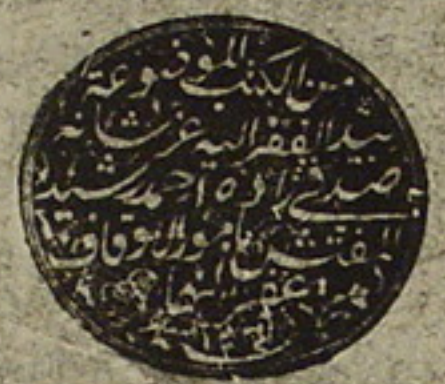 من الكتب الموضوعة
بيد الفقير اليه عز شانه
صدقي زاده احمد رشيد
المفتش بامور الاوقاف
غفر لهما